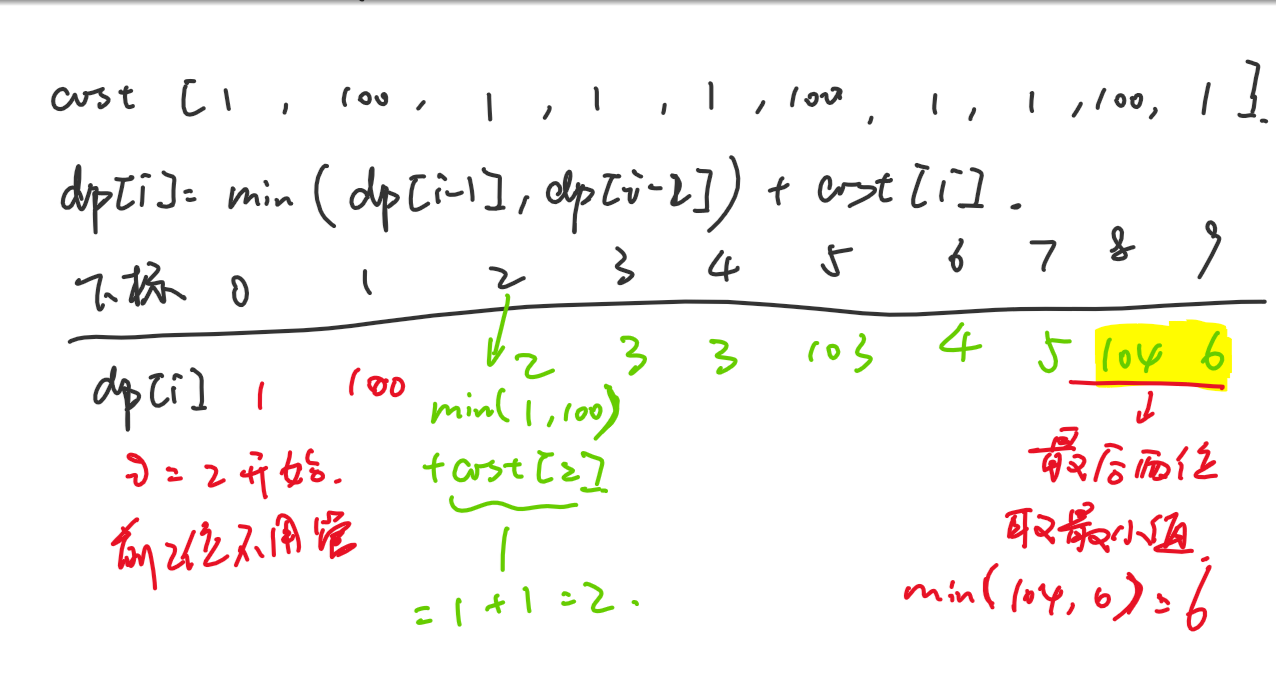 cost [1, 100, 1, 1, 1, 100, 1, 1, 100, 1].
dp[i]= min(dp[i-1], dp[i-2]) + cost[i].
下标 0 1 2 3 4 5 6 7 8 9
dp[i] 1 100 2 3 3 103 4 5 104 6
i=2开始.
前2位不用管
min(1,100)
+cost[2]
1
=1+1=2.
最后两位
取最小值.
min(104,6)=6